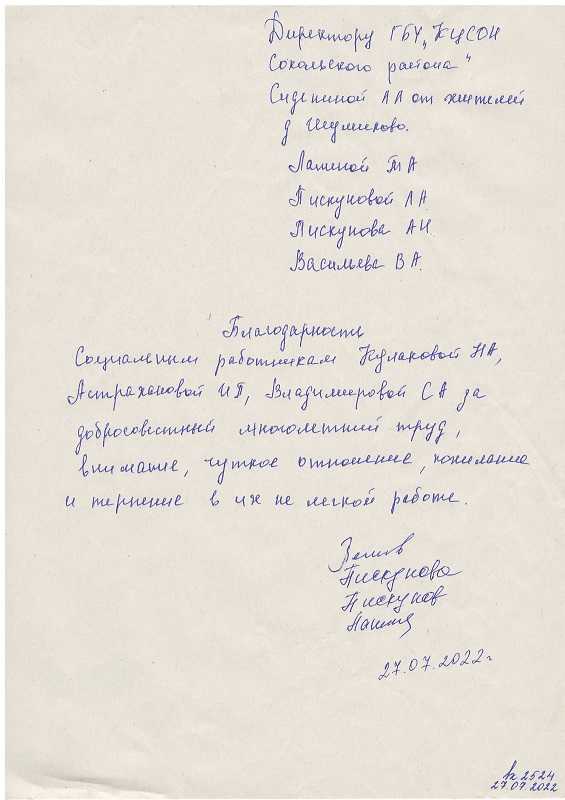 Директору ГБУ „КЦСОН
Сокольского района"
Сидениной ЛЛ от жителей
д Шумиково.
Лапиной ТА
Пискуновой ЛА
Пискунова АИ
Васильева ВА.
Благодарность
Социальным работникам Кулаковой НА,
Астрахановой ИП, Владимировой СА за
добросовестный многолетний труд,
внимание, чуткое отношение, понимание
и терпение в их не легкой работе.
Пискунова
Пискунов
27.07.2022г
вх 2524
27.07.2022